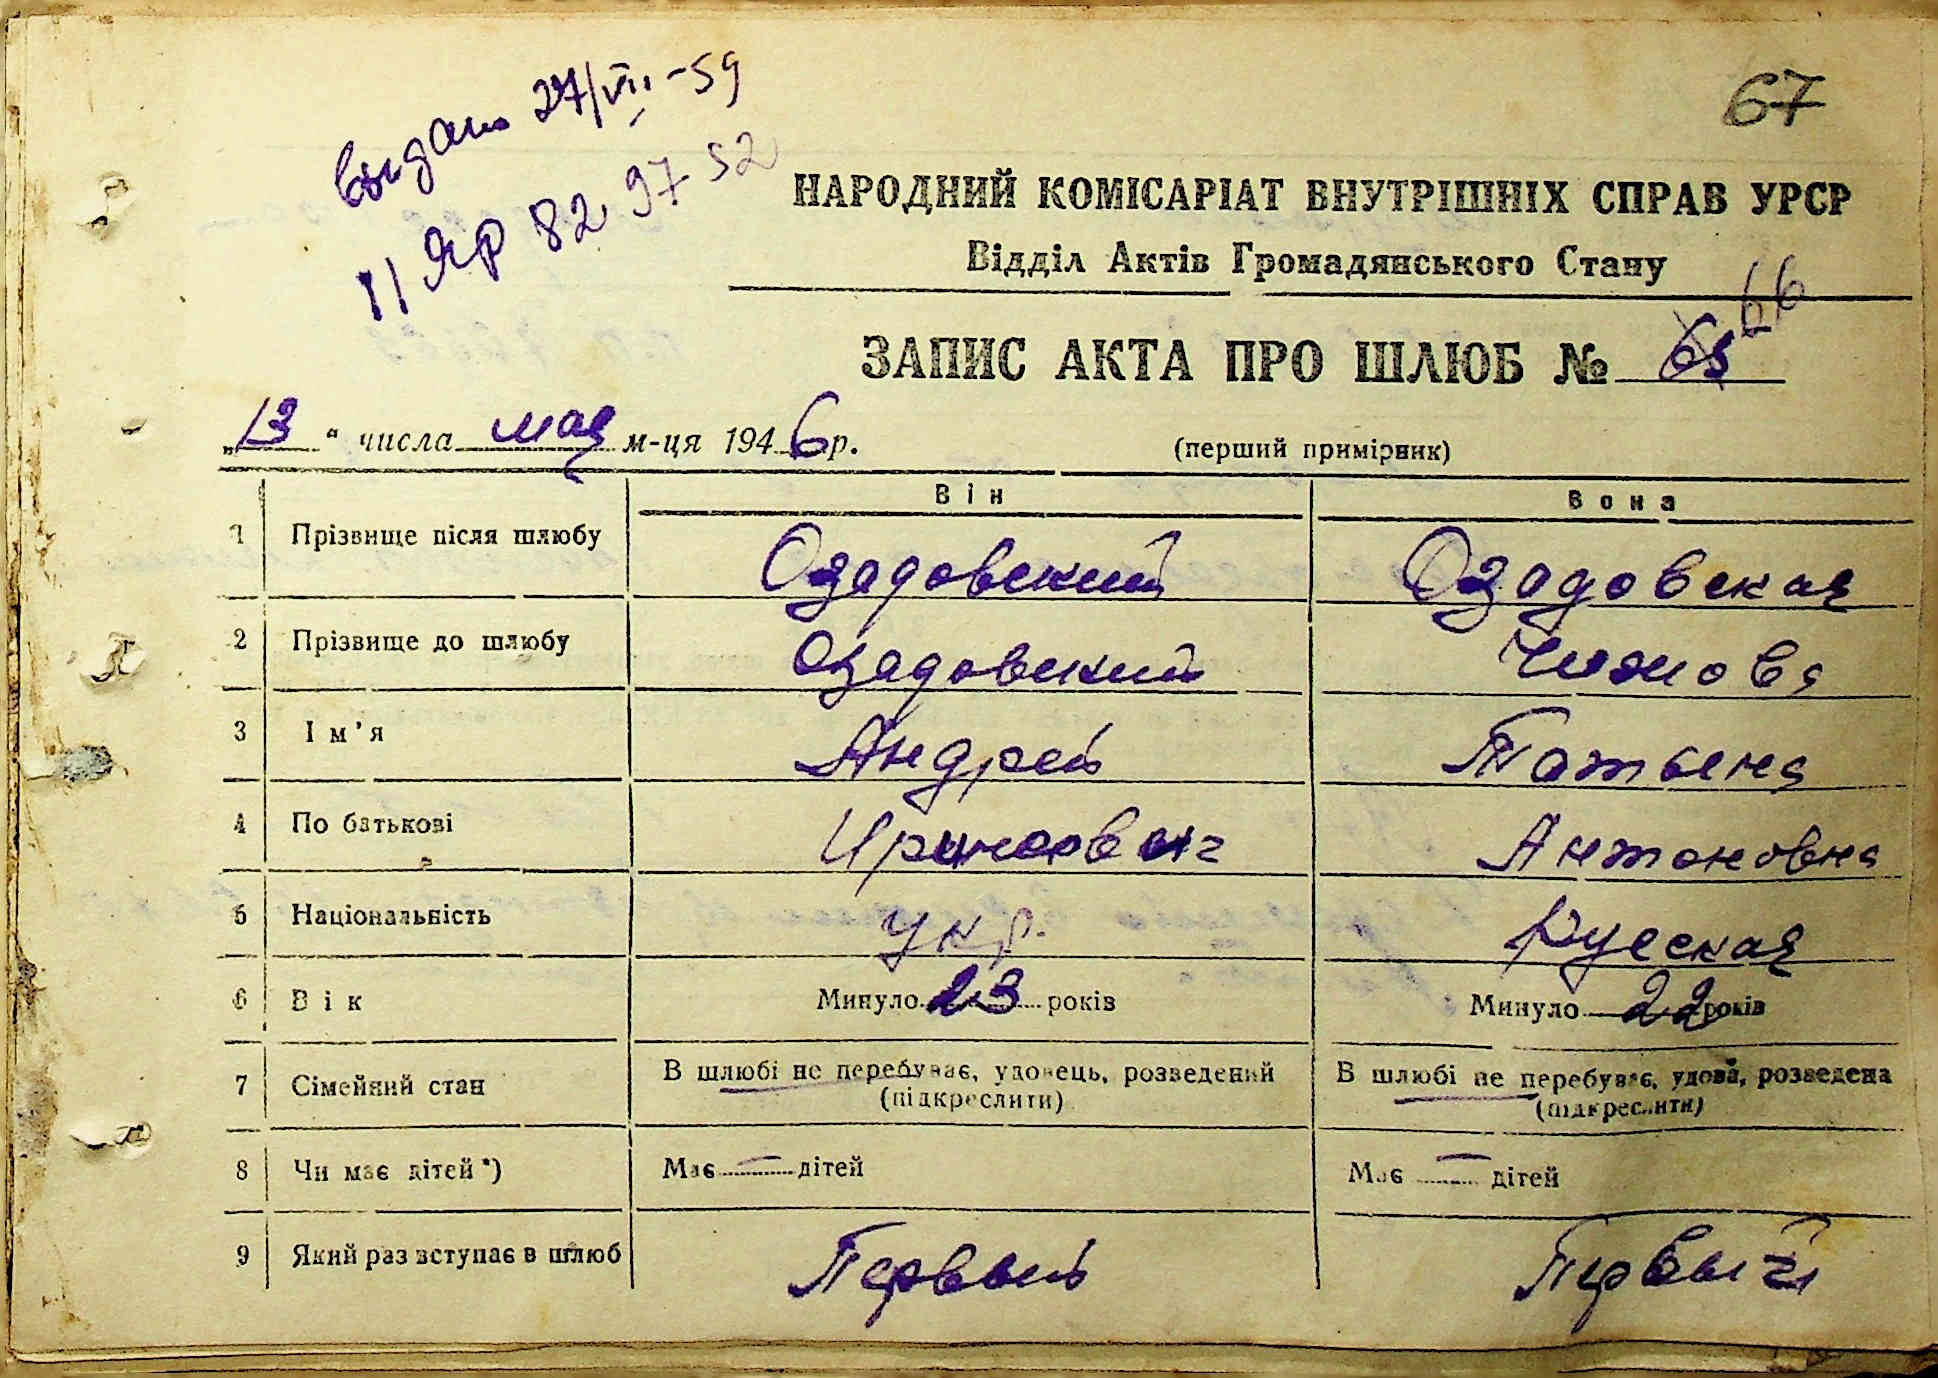 67
выдано 27/VII-59
II ЯР 82 97 52
НАРОДНИЙ КОМІСАРІАТ ВНУТРІШНІХ СПРАВ УРСР
Відділ Актів Громадянського Стану
66
ЗАПИС АКТА ПРО ШЛЮБ № 65
„13“ числа мая м-ця 1946р. (перший примірник)
Він Вона
1 Прізвище після шлюбу Озадовский Озадовская
2 Прізвище до шлюбу Озадовский Чижова
3 Ім’я Андрей Татьяна
4 По батькові Антоновна
5 Національність укр. Русская
6 Вік Минуло 23 років Минуло 22 років
7 Сімейний стан В шлюбі не перебуває, удовець, розведений В шлюбі не перебуває, удова, розведена
(підкреслити) (підкреслити)
8 Чи має дітей*) Має — дітей Має — дітей
9 Який раз вступає в шлюб Первый Первый